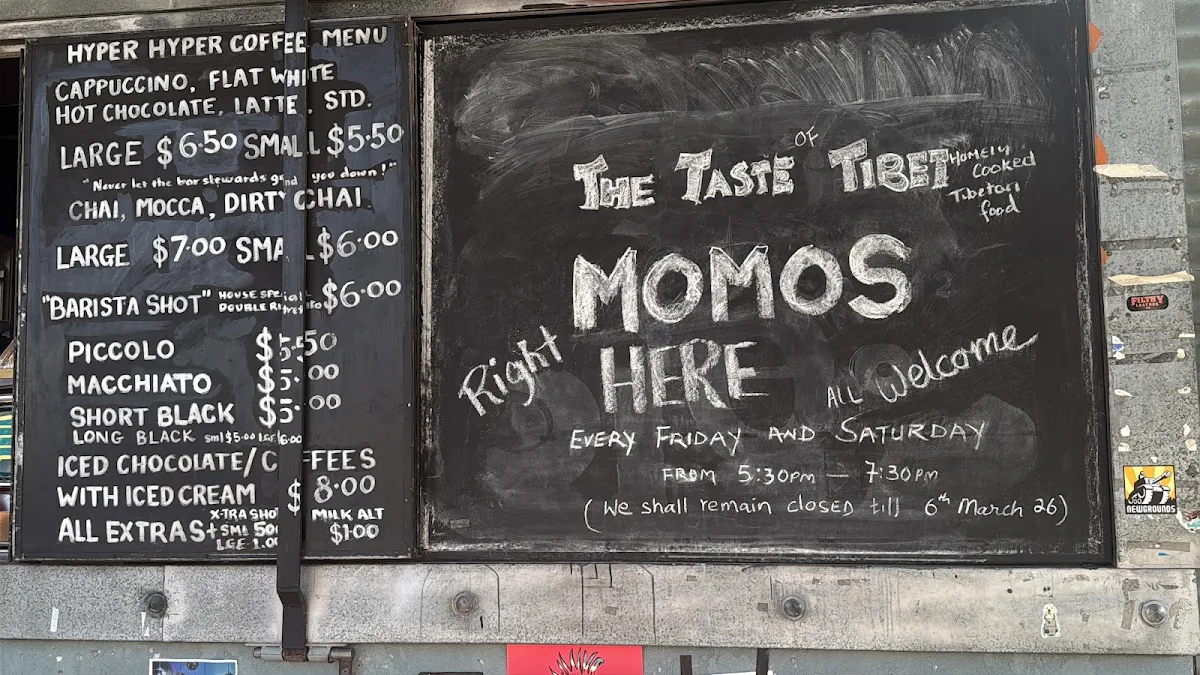 HYPER HYPER COFFEE MENU
CAPPUCCINO, FLAT WHITE
HOT CHOCOLATE, LATTE, STD.
LARGE $6.50 SMALL $5.50
"Never let the bar stewards grind you down!"
CHAI, MOCCA, DIRTY CHAI
LARGE $7.00 SMALL $6.00
"BARISTA SHOT" HOUSE Special $6.00
DOUBLE
PICCOLO $5.50
MACCHIATO $5.00
SHORT BLACK $5.00
LONG BLACK sml $5.00 LGE 6.00
ICED CHOCOLATE/COFFEES
WITH ICED CREAM $8.00
X-TRA SHOT MILK ALT
ALL EXTRAS+ SML 50c $1.00
LGE 1.00
THE TASTE OF TIBET
HOMELY
Cooked
Tibetan
food
MOMOS
Right HERE
ALL Welcome
EVERY FRIDAY AND SATURDAY
FROM 5:30PM — 7:30PM
(We shall remain closed till 6th March 26)
FILTHY
NEWGROUNDS